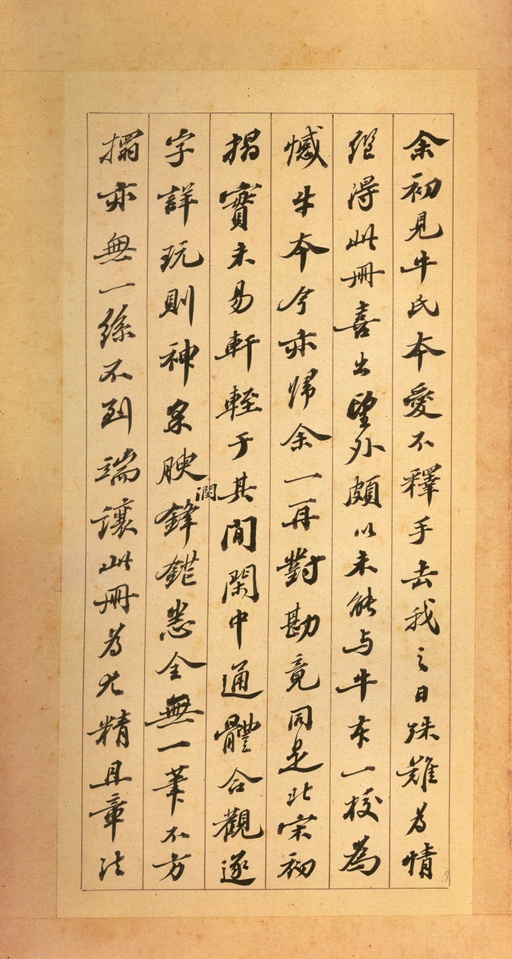 余初見牛氏本愛不釋手去我之日殊難為情
繼得此冊喜出望外頗以未能与牛本一校為
憾牛本今亦歸余一再對勘竟同是北宋初
搨實未易軒輊于其間閑中通體合觀逐
字詳玩則神采腴潤鋒鎧悉全無一筆不方
搨亦無一絲不到端讓此冊為尤精且章法